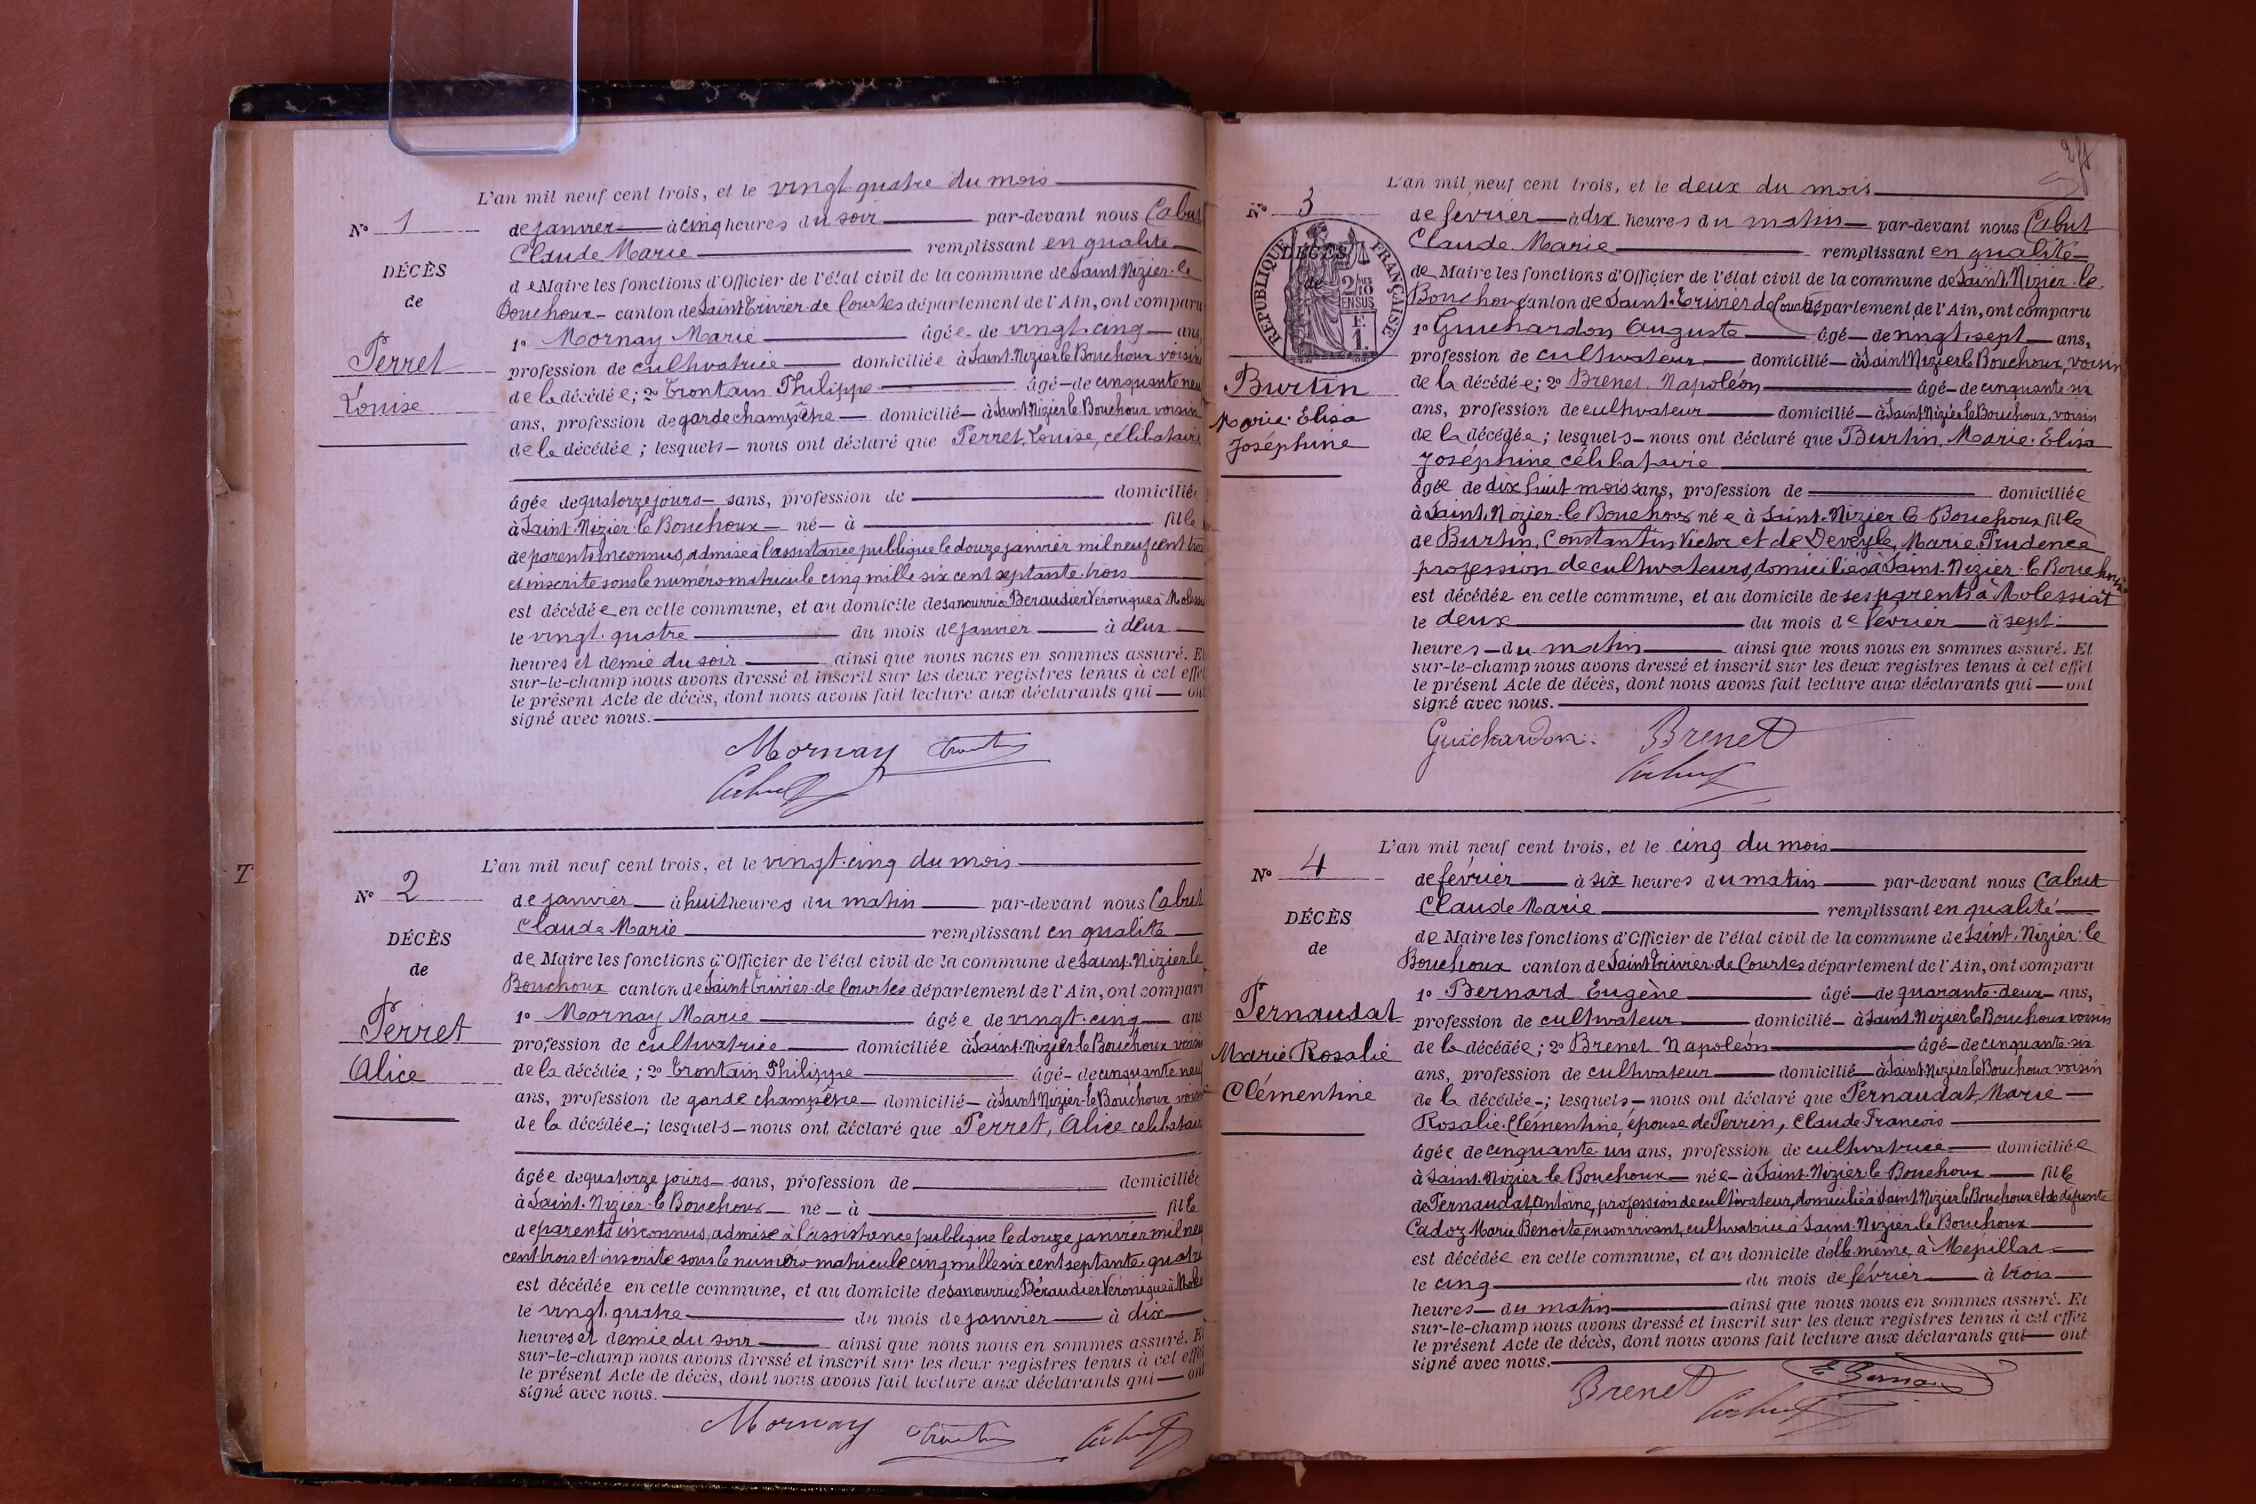 L'an mil neuf cent trois, et le vingt quatre du mois
N° 1
de janvier à cinq heures du soir par-devant nous Cabut
Claude Marie remplissant en qualité
DÉCÈS
de Maire les fonctions d'Officier de l'état civil de la commune de Saint-Nizier-le
de
Bouchoux canton de Saint Trivier de Courtes département de l'Ain, ont comparu
1° Mornay Marie âgée de vingt-cinq ans,
Perret
profession de cultivatrice domiciliée à Saint-Nizier le Bouchoux voisine
de la décédée; 2° Trontain Philippe âgé de cinquante neuf
Louise
ans, profession de garde champêtre domicilié à Saint Nizier le Bouchoux voisin
de la décédée; lesquels nous ont déclaré que Perret, Louise, célibataire
âgée de quatorze jours sans, profession de domiciliée
à Saint-Nizier-le Bouchoux né à fille
de parents inconnus, admise à l'assistance publique le douze janvier mil neuf cent trois
et inscrite sous le numéro matricule cinq mille six cent septante-trois
est décédée en cette commune, et au domicile de sa nourrice Beraudier Véronique à
le vingt-quatre du mois de janvier à deux
heures et demie du soir ainsi que nous nous en sommes assuré. Et
sur-le-champ nous avons dressé et inscrit sur les deux registres tenus à cet effet
le présent Acte de décès, dont nous avons fait lecture aux déclarants qui ont
signé avec nous.
Mornay
Cabut
L'an mil neuf cent trois, et le vingt-cinq du mois
N° 2
de janvier à huit heures du matin par-devant nous Cabut
Claude Marie remplissant en qualité
DÉCÈS
de Maire les fonctions d'Officier de l'état civil de la commune de Saint-Nizier le
de
Bouchoux canton de Saint Trivier de Courtes département de l'Ain, ont comparu
1° Mornay Marie âgée de vingt-cinq ans
Perret
profession de cultivatrice domiciliée à Saint-Nizier le Bouchoux voisine
de la décédée; 2° Trontain Philippe âgé de cinquante neuf
Alice
ans, profession de garde champêtre domicilié à Saint Nizier-le Bouchoux voisin
de la décédée; lesquels nous ont déclaré que Perret, Alice célibataire
âgée de quatorze jours sans, profession de domiciliée
à Saint-Nizier-le Bouchoux né à fille
de parents inconnus, admise à l'assistance publique le douze janvier mil neuf
cent trois et inscrite sous le numéro matricule cinq mille six cent septante-quatre
est décédée en cette commune, et au domicile de sa nourrice Béraudier Véronique à
le vingt-quatre du mois de janvier à dix
heures et demie du soir ainsi que nous nous en sommes assuré. Et
sur-le-champ nous avons dressé et inscrit sur les deux registres tenus à cet effet
le présent Acte de décès, dont nous avons fait lecture aux déclarants qui ont
signé avec nous.
Mornay Cabut
L'an mil neuf cent trois, et le deux du mois
N° 3
de février à dix heures du matin par-devant nous Cabut
Claude Marie remplissant en qualité
RÉPUBLIQUE FRANÇAISE
DÉCÈS
de
de Maire les fonctions d'Officier de l'état civil de la commune de Saint-Nizier-le
Bouchoux canton de Saint-Trivier de Courtes département de l'Ain, ont comparu
1° Guichardon Auguste âgé de vingt-sept ans,
profession de cultivateur domicilié à Saint Nizier le Bouchoux, voisin
Burtin
de la décédée; 2° Brenet Napoléon âgé de cinquante six
Marie-Elisa
ans, profession de cultivateur domicilié à Saint Nizier le Bouchoux, voisin
Joséphine
de la décédée; lesquels nous ont déclaré que Burtin, Marie-Elisa
Joséphine célibataire
âgée de dix huit mois sans, profession de domiciliée
à Saint-Nizier-le Bouchoux née à Saint-Nizier le Bouchoux fille
de Burtin, Constantin Victor et de Deveyle, Marie Prudence
profession de cultivateurs, domiciliés à Saint-Nizier-le Bouchoux
est décédée en cette commune, et au domicile de ses parents à Molessiat
le deux du mois de février à sept
heures du matin ainsi que nous nous en sommes assuré. Et
sur-le-champ nous avons dressé et inscrit sur les deux registres tenus à cet effet
le présent Acte de décès, dont nous avons fait lecture aux déclarants qui ont
signé avec nous.
Guichardon. Brenet
Cabut
L'an mil neuf cent trois, et le cinq du mois
N° 4
de février à six heures du matin par-devant nous Cabut
Claude Marie remplissant en qualité
DÉCÈS
de Maire les fonctions d'Officier de l'état civil de la commune de Saint-Nizier-le
de
Bouchoux canton de Saint Trivier de Courtes département de l'Ain, ont comparu
1° Bernard Eugène âgé de quarante-deux ans,
Pernaudat
profession de cultivateur domicilié à Saint-Nizier le Bouchoux voisin
de la décédée; 2° Brenet Napoléon âgé de cinquante-six
Marie Rosalie
ans, profession de cultivateur domicilié à Saint Nizier le Bouchoux voisin
Clémentine
de la décédée; lesquels nous ont déclaré que Pernaudat, Marie
Rosalie-Clémentine, épouse de Perrin, Claude François
âgée de cinquante un ans, profession de cultivatrice domiciliée
à Saint-Nizier le Bouchoux née à Saint-Nizier-le Bouchoux fille
de Pernaudat, Antoine, profession de cultivateur, domicilié à Saint Nizier le Bouchoux et de défunte
Cadoz Marie Benoite, en son vivant, cultivatrice à Saint-Nizier-le Bouchoux
est décédée en cette commune, et au domicile d'elle-même, à Mépillat
le cinq du mois de février à trois
heures du matin ainsi que nous nous en sommes assuré. Et
sur-le-champ nous avons dressé et inscrit sur les deux registres tenus à cet effet
le présent Acte de décès, dont nous avons fait lecture aux déclarants qui ont
signé avec nous.
Brenet E Bernard
Cabut